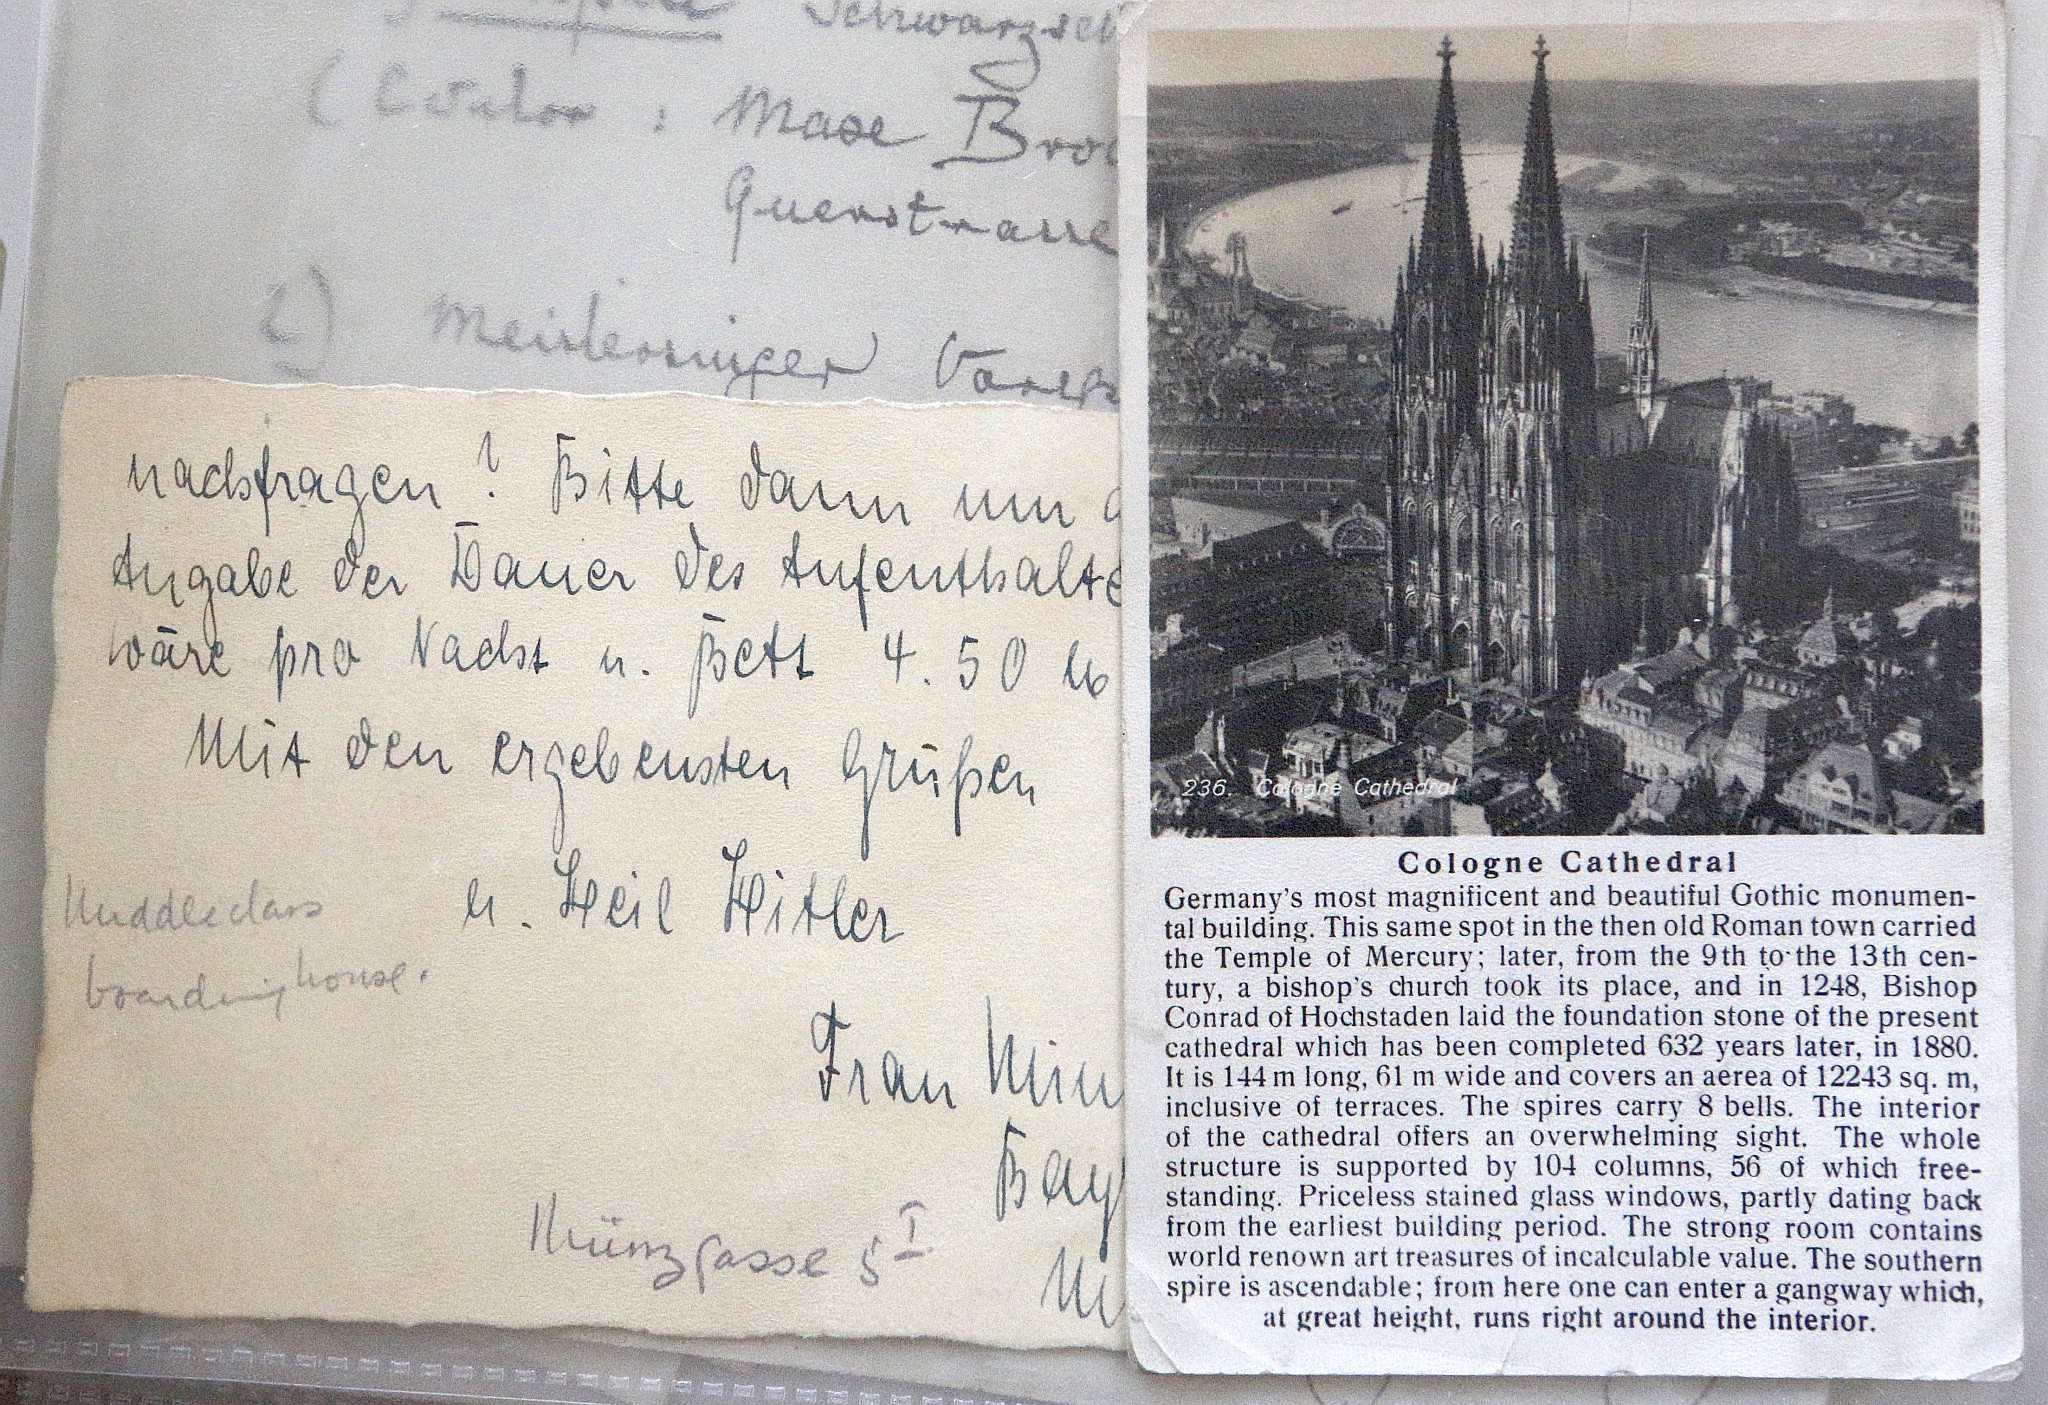 Schwarzsch
: Maxe Bro
Querstrasse
2) Meistersinger
nachfragen? Bitte dann um
Angabe der Dauer des Aufenthalte
wäre pro Nacht u. Bett 4.50
Mit den ergebensten Grüßen
u. Heil Hitler
Middleclass
boardinghouse.
Frau Min
Bay
Münzgasse 5 I
236. Cologne Cathedral
Cologne Cathedral
Germany's most magnificent and beautiful Gothic monumen-
tal building. This same spot in the then old Roman town carried
the Temple of Mercury; later, from the 9th to the 13th cen-
tury, a bishop's church took its place, and in 1248, Bishop
Conrad of Hochstaden laid the foundation stone of the present
cathedral which has been completed 632 years later, in 1880.
It is 144 m long, 61 m wide and covers an aerea of 12243 sq. m,
inclusive of terraces. The spires carry 8 bells. The interior
of the cathedral offers an overwhelming sight. The whole
structure is supported by 104 columns, 56 of which free-
standing. Priceless stained glass windows, partly dating back
from the earliest building period. The strong room contains
world renown art treasures of incalculable value. The southern
spire is ascendable; from here one can enter a gangway which,
at great height, runs right around the interior.